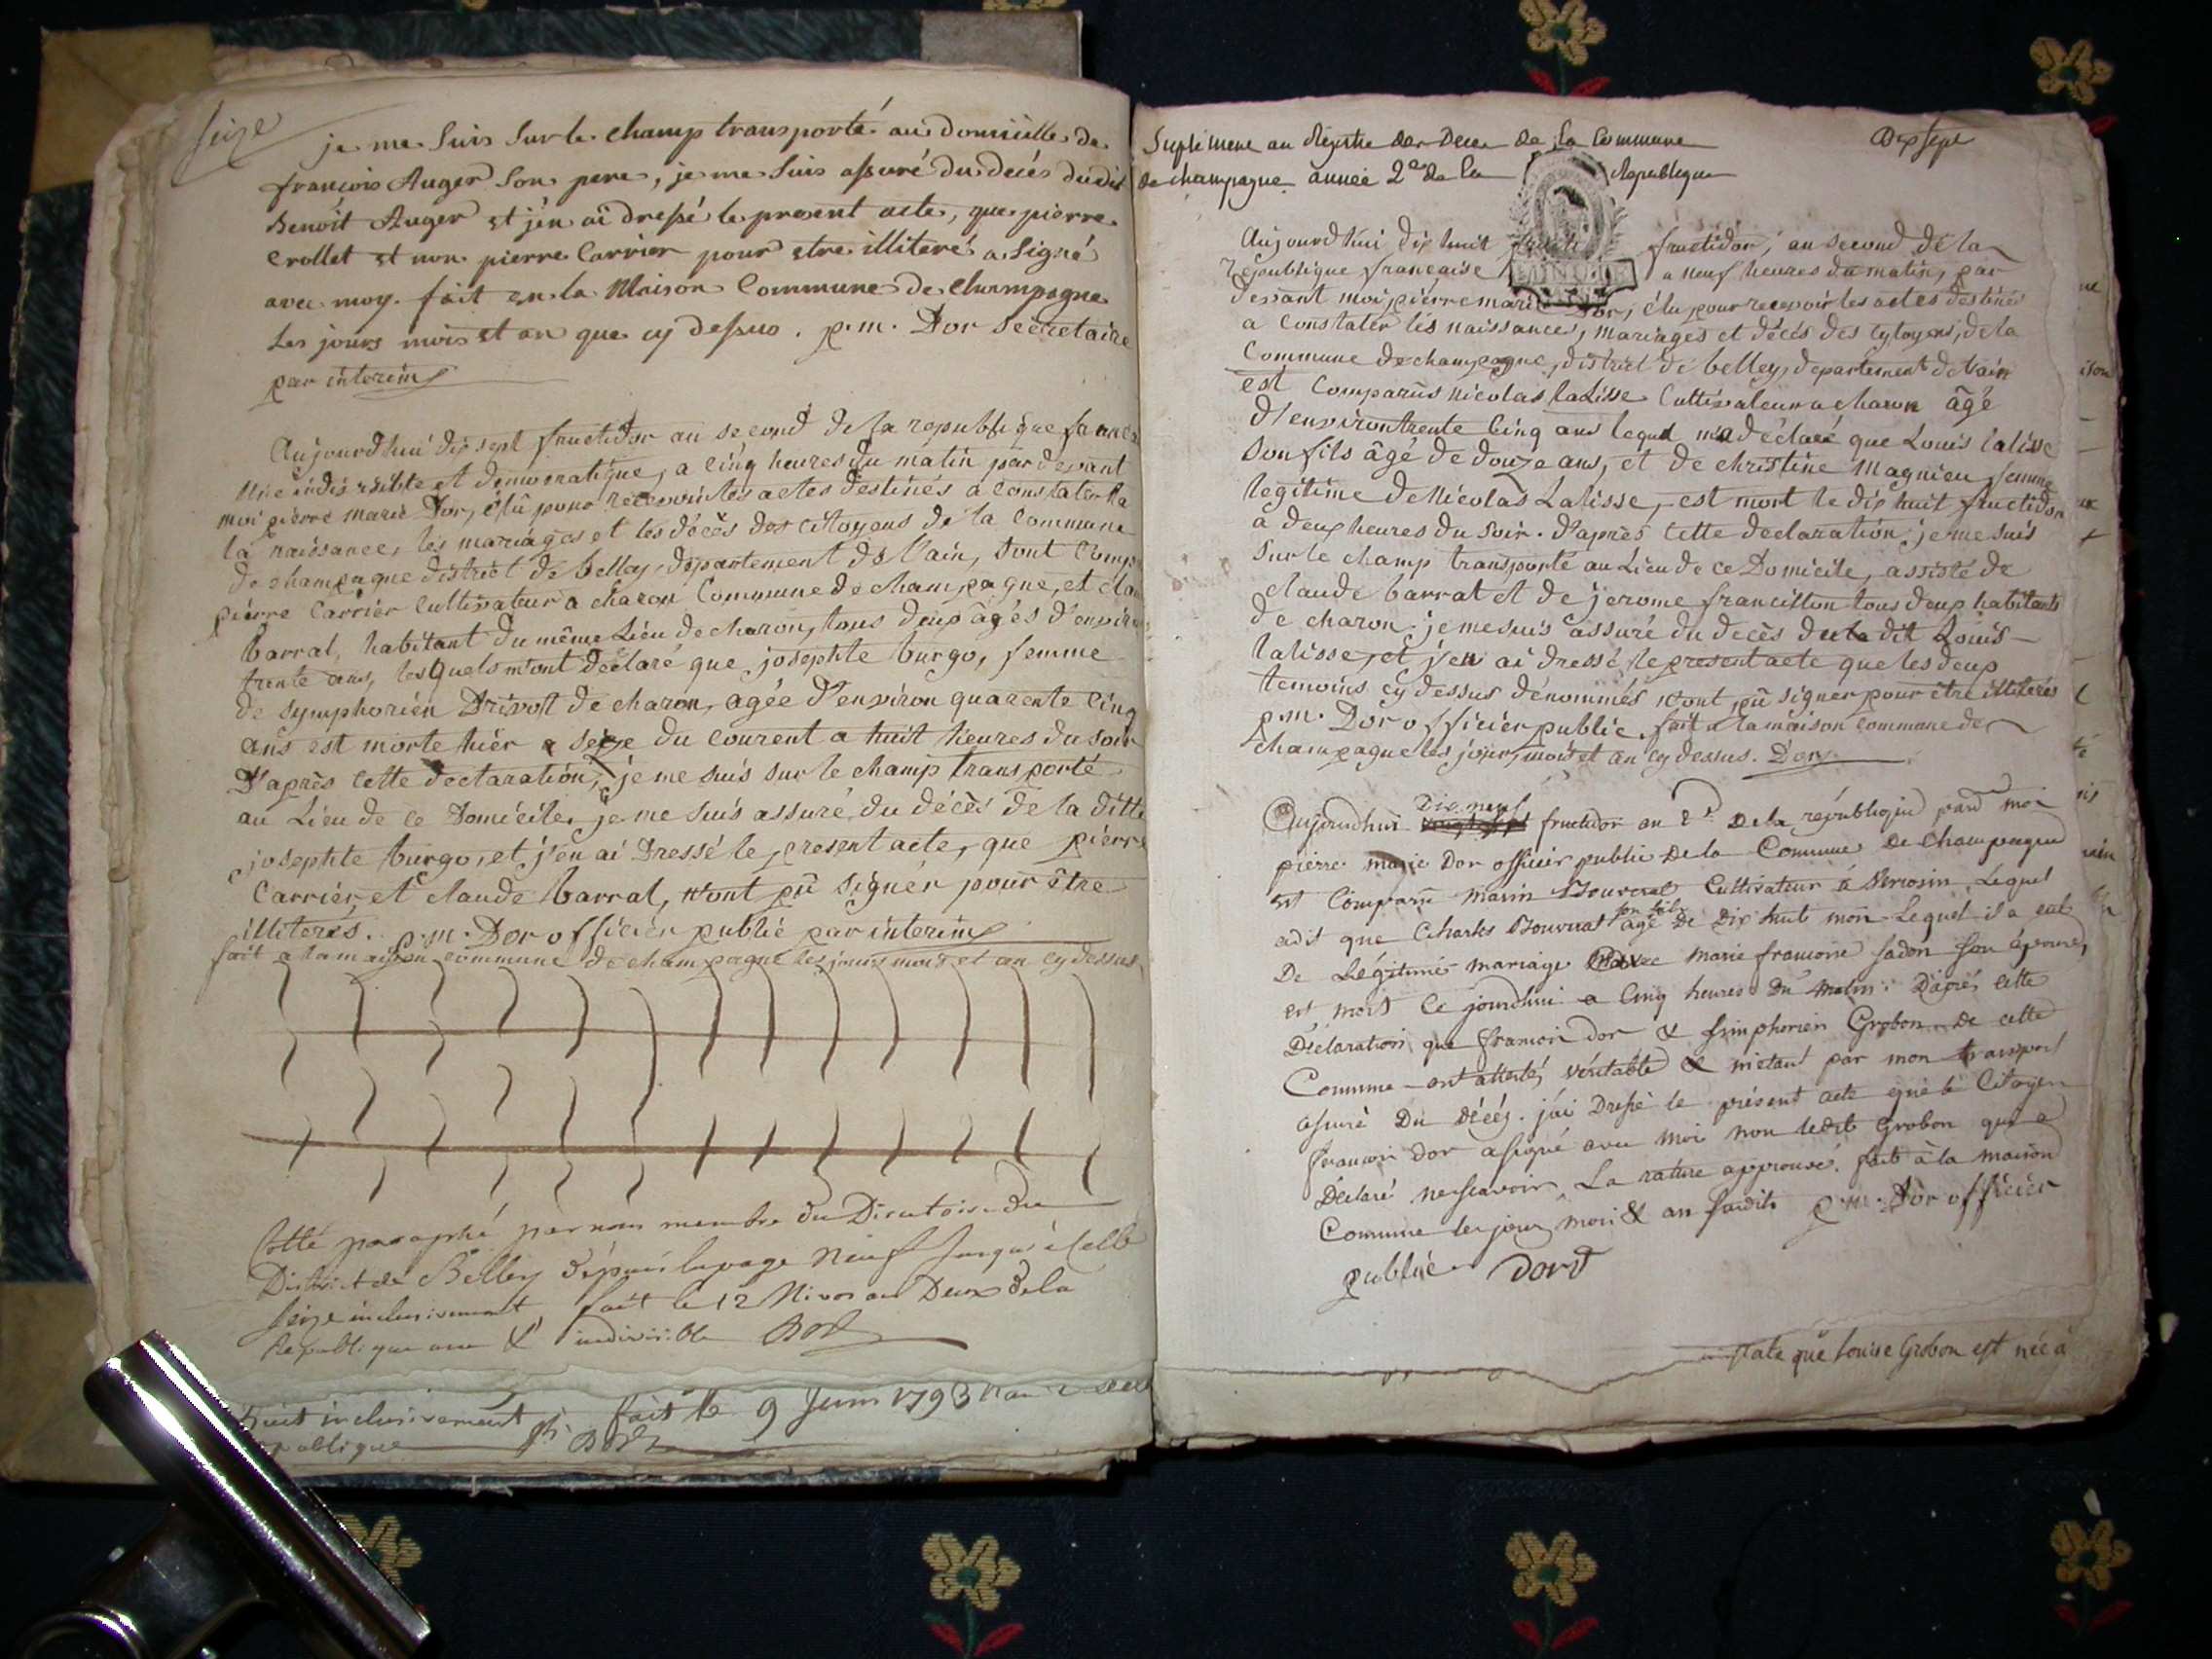 seize
je me suis sur le champ transporté au domicille de
francois Auger son pere, je me suis assuré du decés dudit
Benoit Auger et j'en ai dressé le present acte, que pierre
Crollet et non pierre Carrier pour etre illiteré a signé
avec moy. fait en la Maison Commune de Champagne
Les jours mois et an que cy dessus. p.m. Dor secretaire
par interim
Aujourd'hui dix sept fructidor an second de la republique franca
une indivisible et democratique, a cinq heures du matin par devant
moi pierre marie Dor, élû pour recevoir les actes destinés a constater la
la naissance, les mariages et les décès des citoyens de la commune
de champagne district de belley, département de l'ain, sont comp
pierre Carrier cultivateur a charon Commune de champagne, et clau
barral, habitant du même Lieu de charon, tous deux âgés d'enviro
trente ans, lesquels m'ont déclaré que josephte burgo, femme
de symphorien Drivost de charon, agée d'environ quarente cinq
ans est morte hier a seize du courent a huit heures du soir
D'après cette declaration, je me suis sur le champ transporté
au Lieu de ce domicile, je me suis assuré du décès de la ditte
josephte burgo, et j'en ai dressé le present acte, que pierre
Carrier et claude barral, n'ont pû signer pour être
illiterés. p.m. Dor officier public par interim
fait a la maison commune de champagne les jours mois et an cy dessus
Cotté paraphé par nous membre du Directoire du
District de Belley dépuis la page Neuf jusqu'à celle
seize inclusivement fait le 12 Nivos an Deux de la
Republique une & indivisible
huit inclusivement fait le 9 Juin 1793 l'an 2
publique
Suplément au Registre des Deces de la Commune
de champagne année 2e de la Republique
Dix sept
Aujourd'hui dix huit fructidor, an second de la
République francaise a neuf heures du matin, par
devant moi pierre marie Dor, élu pour recevoir les actes destinés
a constater les naissances, mariages et décès des cytoyens, de la
Commune de champagne, district de belley, departement de l'ain
est comparus nicolas lalisse Cultivateur a charon âgé
d'environ trente cinq ans lequel m'a déclaré que Louis lalisse
son fils âgé de douze ans, et de christine magnieu femme
legitime de Nicolas Lalisse, est mort le dix huit fructidor
a deux heures du soir. D'après cette declaration je me suis
sur le champ transporté au Lieu de ce Domicile, assisté de
claude barrat et de jerome francillon tous deux habitants
de charon. je me suis assuré du decès du dit Louis
lalisse, et j'en ai dressé le present acte que les deux
temoins cy dessus dénommés n'ont pû signer pour être illiterés
p.m. Dor officier public. fait a la maison commune de
champagne les jour, mois et an cy dessus. Dor
Aujourdhui Dix neuf fructidor an 2e de la république pard moi
pierre marie Dor officier public de la Commune de Champagne
est Comparu marin Bouvrat Cultivateur à Vercosin, Lequel
a dit que Charles Bouvrat son fils agé de Dix huit mois Lequel il a eut
De Légitime mariage avec marie francoise sadon son épouse,
est mort Ce jourdhui a Cinq heures du matin. D'après cette
Déclaration que francois dor & simphorien Grobon de cette
Commune ont attesté véritable & m'étant par mon transport
assuré du décés. j'ai Dressé le présent acte que le Citoyen
francois dor a signé avec moi non ledit Grobon qui a
Déclaré ne scavoir. La rature approuvé. fait à la maison
Commune les jour mois & an susdits p.m. Dor officier
public Dor
state que Louise Grobon est née à